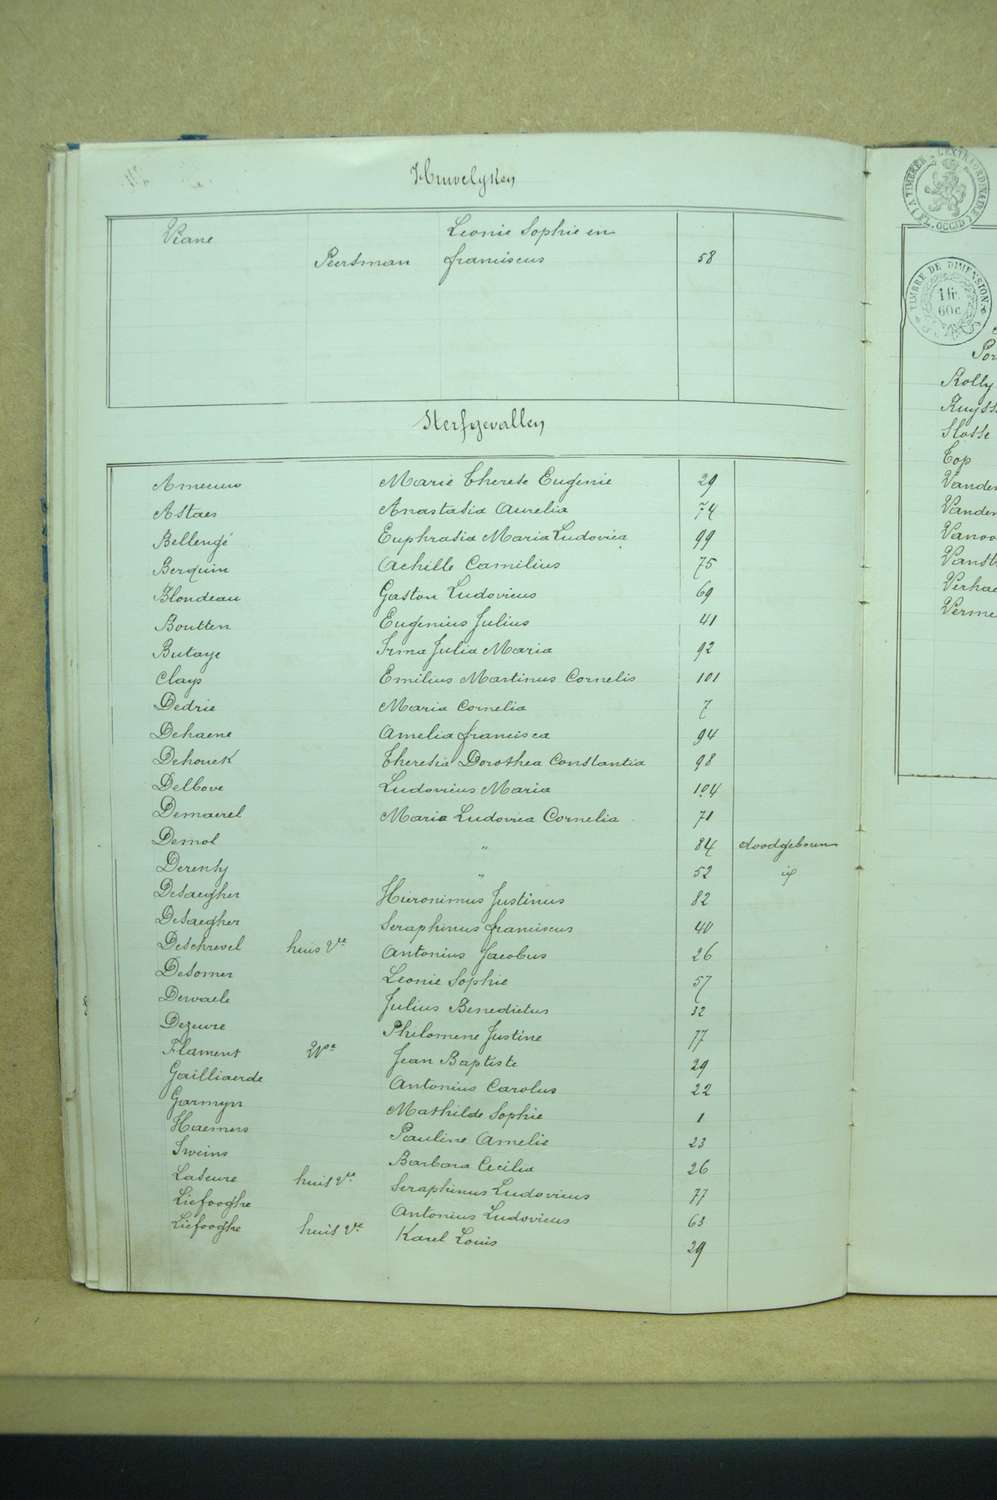 Huwelyken
Viane Leonie Sophie en
Peersman franciscus 58
Sterfgevallen
Ameuw Marie Therese Eugenie 29
Astaes Anastasia Aurelia 74
Bellengé Euphrasia Maria Ludovica 99
Berquin Achille Camilius 75
Blondeau Gaston Ludovicus 69
Boutten Eugenius Julius 41
Butaye Irma Julia Maria 92
Clays Emilius Martinus Cornelis 101
Dedrie Maria Cornelia 7
Dehaene Amelia francisca 94
Dehouck Theresia Dorothea Constantia 98
Delbove Ludovicus Maria 104
Demairel Maria Ludovica Cornelia 71
Demol " 84 doodgeboren
Derenty " 52 id
Desaegher Hieronimus Justinus 82
Desaegher Seraphinus franciscus 40
Deschrevel huis Ve Antonius Jacobus 26
Desomer Leonie Sophie 57
Dewaele Julius Benedictus 32
Dezuvre Philomene Justine 77
Flament Jean Baptiste 29
Gailliaerde Antonius Carolus 22
Garmyn Mathilde Sophie 1
Haemers Pauline Amelie 23
Iweins Barbara Cecilia 26
Laseure huis Ve Seraphinus Ludovicus 77
Liefooghe Antonius Ludovicus 63
Liefooghe huis Ve Karel Louis 29
TIMBRE DE DIMENSION
1 fr.
60 c.
Rolly
Ruyss
Slosse
Top
Vanden
Vanden
Vanoo
Vanst
Verhae
Verme